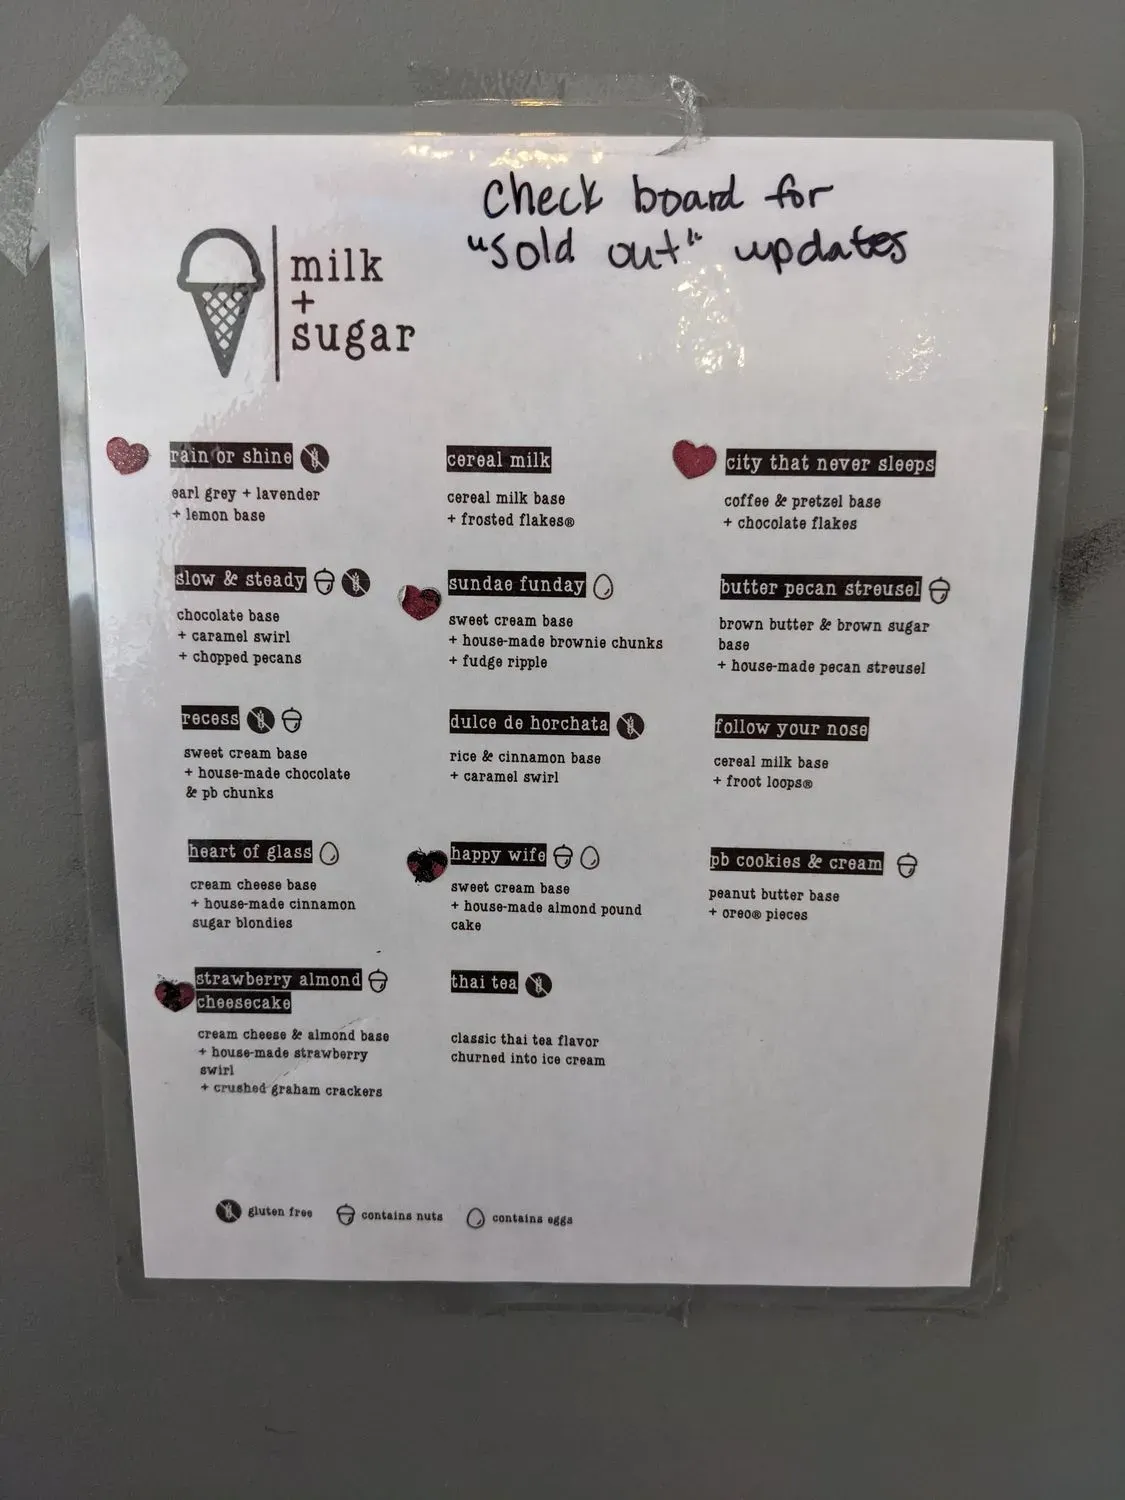 Check board for
"Sold out" updates
milk
+
sugar
rain or shine
earl grey + lavender
+ lemon base
cereal milk
cereal milk base
+ frosted flakes®
city that never sleeps
coffee & pretzel base
+ chocolate flakes
slow & steady
chocolate base
+ caramel swirl
+ chopped pecans
sundae funday
sweet cream base
+ house-made brownie chunks
+ fudge ripple
butter pecan streusel
brown butter & brown sugar
base
+ house-made pecan streusel
recess
sweet cream base
+ house-made chocolate
& pb chunks
dulce de horchata
rice & cinnamon base
+ caramel swirl
follow your nose
cereal milk base
+ froot loops®
heart of glass
cream cheese base
+ house-made cinnamon
sugar blondies
happy wife
sweet cream base
+ house-made almond pound
cake
pb cookies & cream
peanut butter base
+ oreo® pieces
strawberry almond
cheesecake
cream cheese & almond base
+ house-made strawberry
swirl
+ crushed graham crackers
thai tea
classic thai tea flavor
churned into ice cream
gluten free
contains nuts
contains eggs